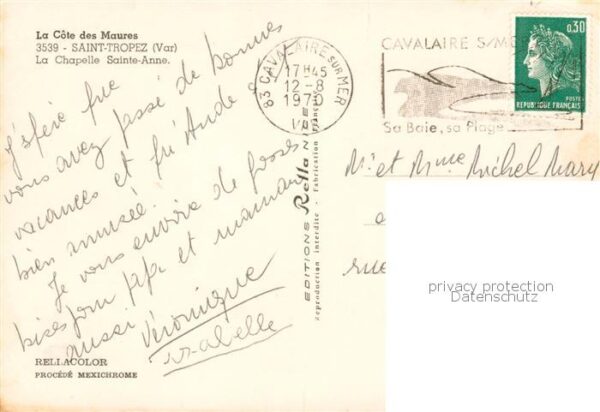 La Côte des Maures
3539 - SAINT-TROPEZ (Var)
La Chapelle Sainte-Anne.
J'espère que
vous avez passé de bonnes
vacances et
bien amusée.
Je vous envoie de grosses
bises pour papa et maman
aussi Véronique
RELLACOLOR
PROCÉDÉ MEXICHROME
EDITIONS Rella NICE
Reproduction interdite - Fabrication
83 CAVALAIRE SUR MER
17H45
12-8
1970
VAR
CAVALAIRE S/M
Sa Baie, sa Plage
0,30
POSTES
REPUBLIQUE FRANÇAISE
Mr et Mme Michel Mary
rue
privacy protection
Datenschutz